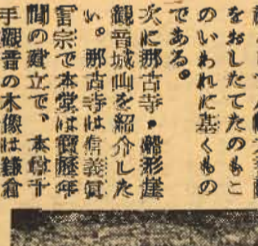 をおしたてたのもこ
のいわれに基くもの
である。
次に那古寺・崖
観音城山を紹介した
い。那古寺は真
言宗で本堂は宝暦年
間の建立で、本尊千
手観音の木像は鎌倉